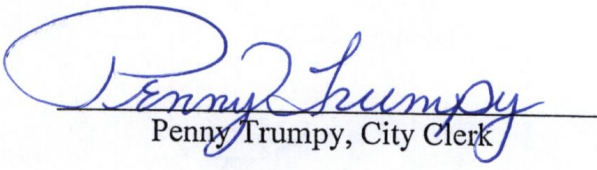 Penny Trumpy
Penny Trumpy, City Clerk